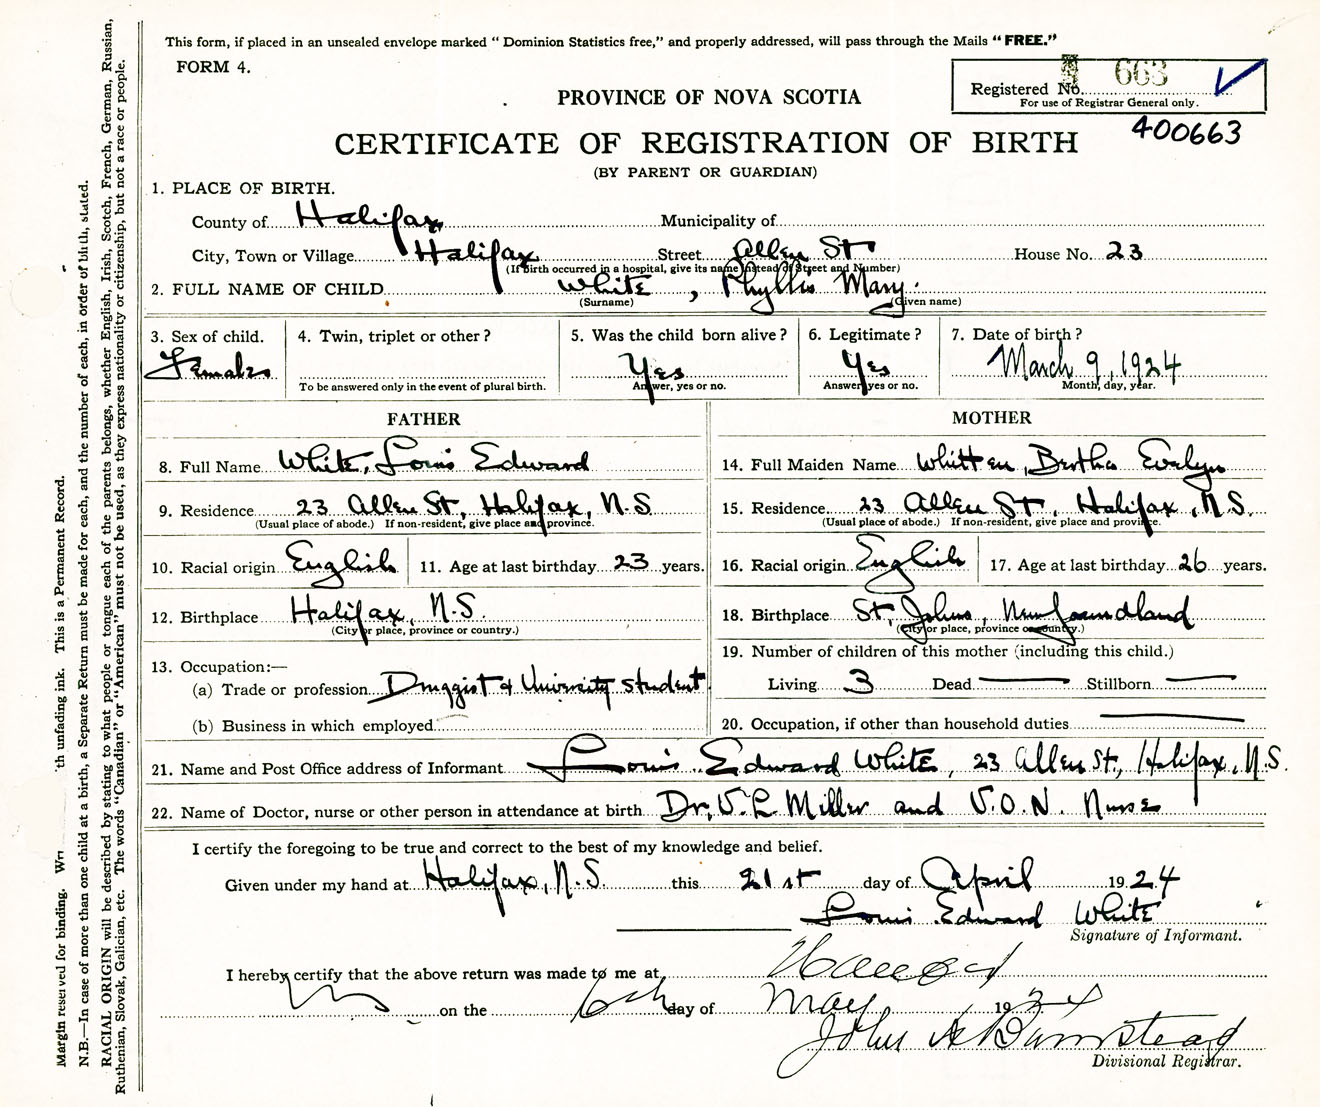 This form, if placed in an unsealed envelope marked "Dominion Statistics free," and properly addressed, will pass through the Mails "FREE."
FORM 4.
Registered No. 663
For use of Registrar General only.
400663
PROVINCE OF NOVA SCOTIA
CERTIFICATE OF REGISTRATION OF BIRTH
(BY PARENT OR GUARDIAN)
1. PLACE OF BIRTH.
County of Halifax Municipality of
City, Town or Village Halifax Street Allen St House No. 23
(If birth occurred in a hospital, give its name instead of Street and Number)
2. FULL NAME OF CHILD White, Phyllis Mary.
(Surname) (Given name)
3. Sex of child. 4. Twin, triplet or other? 5. Was the child born alive? 6. Legitimate? 7. Date of birth?
Female Yes Yes March 9, 1924
To be answered only in the event of plural birth. Answer, yes or no. Answer yes or no. Month, day, year.
FATHER
8. Full Name White, Louis Edward
9. Residence 23 Allen St, Halifax, N.S
(Usual place of abode.) If non-resident, give place and province.
10. Racial origin English 11. Age at last birthday 23 years.
12. Birthplace Halifax, N.S.
(City or place, province or country.)
13. Occupation:—
(a) Trade or profession Druggist & University student
(b) Business in which employed
MOTHER
14. Full Maiden Name Whitten, Bertha Evelyn
15. Residence 23 Allen St, Halifax, N.S.
(Usual place of abode.) If non-resident, give place and province.
16. Racial origin English 17. Age at last birthday 26 years.
18. Birthplace St, Johns, Newfoundland
(City or place, province or country.)
19. Number of children of this mother (including this child.)
Living 3 Dead — Stillborn —
20. Occupation, if other than household duties —
21. Name and Post Office address of Informant Louis Edward White, 23 Allen St, Halifax, N.S.
22. Name of Doctor, nurse or other person in attendance at birth Dr, V. L Miller and V.O.N. Nurse
I certify the foregoing to be true and correct to the best of my knowledge and belief.
Given under my hand at Halifax, N.S. this 21st day of April 1924
Louis Edward White
Signature of Informant.
I hereby certify that the above return was made to me at
NS on the 6th day of May 1924
John A Bumstead
Divisional Registrar.
Margin reserved for binding. th unfading ink. This is a Permanent Record.
N.B.—In case of more than one child at a birth, a Separate Return must be made for each, and the number of each, in order of birth, stated.
RACIAL ORIGIN will be described by stating to what people or tongue each of the parents belongs, whether English, Irish, Scotch, French, German, Russian,
Ruthenian, Slovak, Galician, etc. The words "Canadian" or "American" must not be used, as they express nationality or citizenship, but not a race or people.